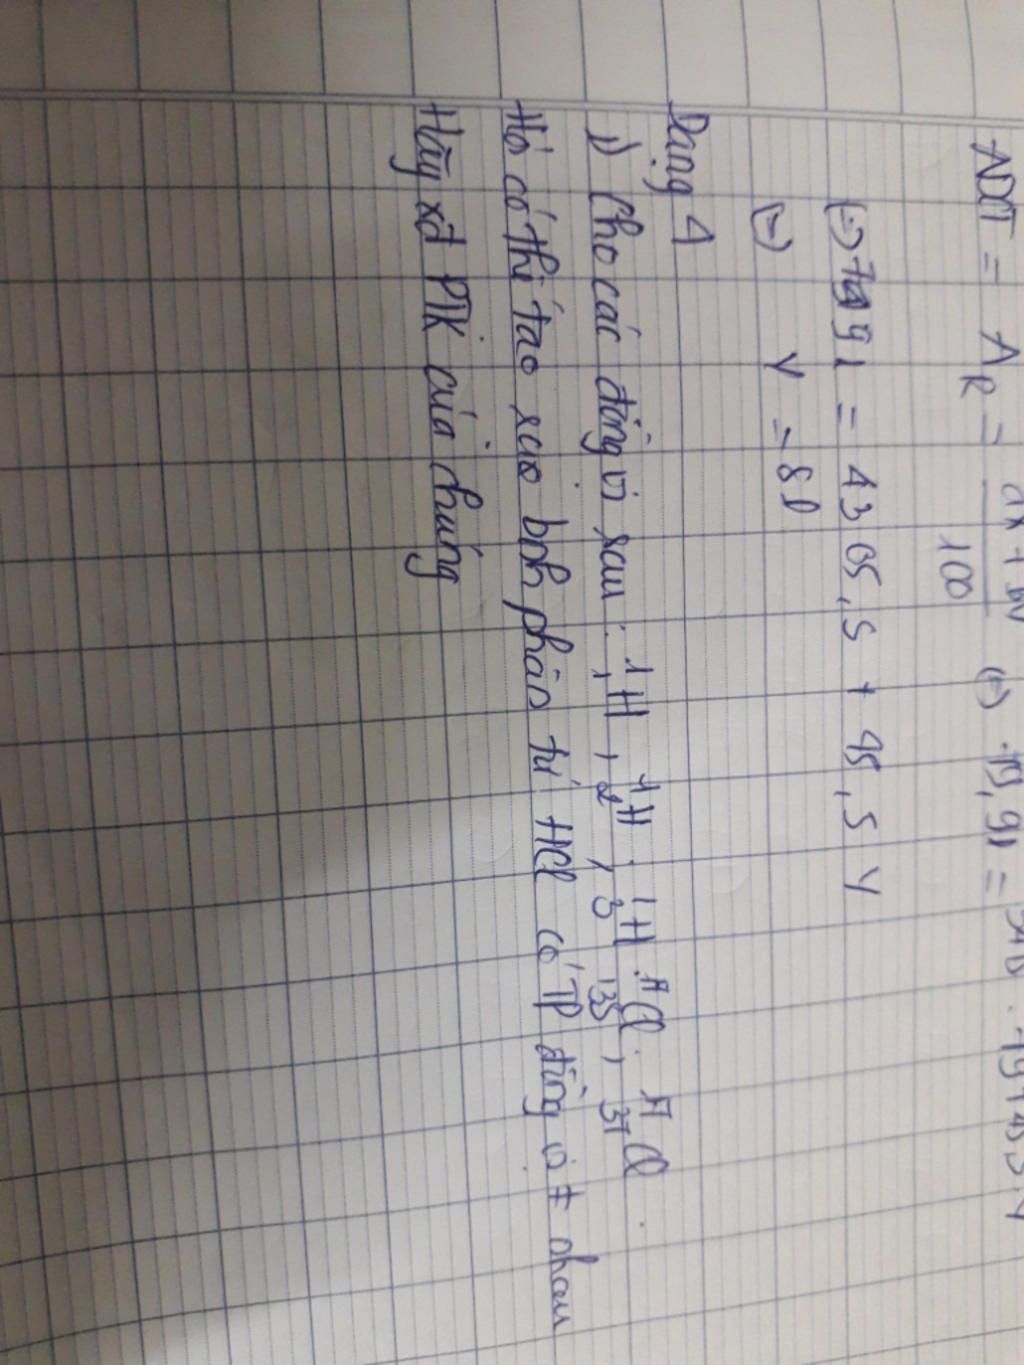 ADCT = A_R = ax + by / 100 (=) 79,91 =
(=) 7991 = 4305,5 + 45,5 Y
(=) Y = 81
Dạng 4
1) Cho các đồng vị sau: ¹₁H, ¹₂H, ¹₃H, ¹⁷₃₅Cl, ¹⁷₃₇Cl.
Hỏi có thể tạo xao bnh phân tử HCl có TP đồng vị ≠ nhau
Hãy xđ PTK của chúng